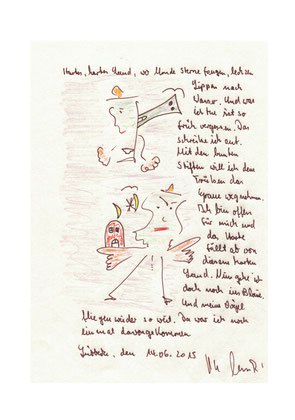 hartes, hartes Land, wo Monde Sterne fangen, lechzen
Lippen nach
. Und was
ich tue ist so
früh vergangen. Das
ist gut.
Mit den bunten
Stiften will ich dem
Trübsen das
Graue wegnehmen.
Ich bin offen
für mich und
das
fällt ab von
diesem harten
Land. Nun gehe ich
doch noch ins Blaue.
Und meine Vögel
fliegen wieder so weit. Da war ich noch
einmal davongekommen
Lübbecke, den 14.06.2015